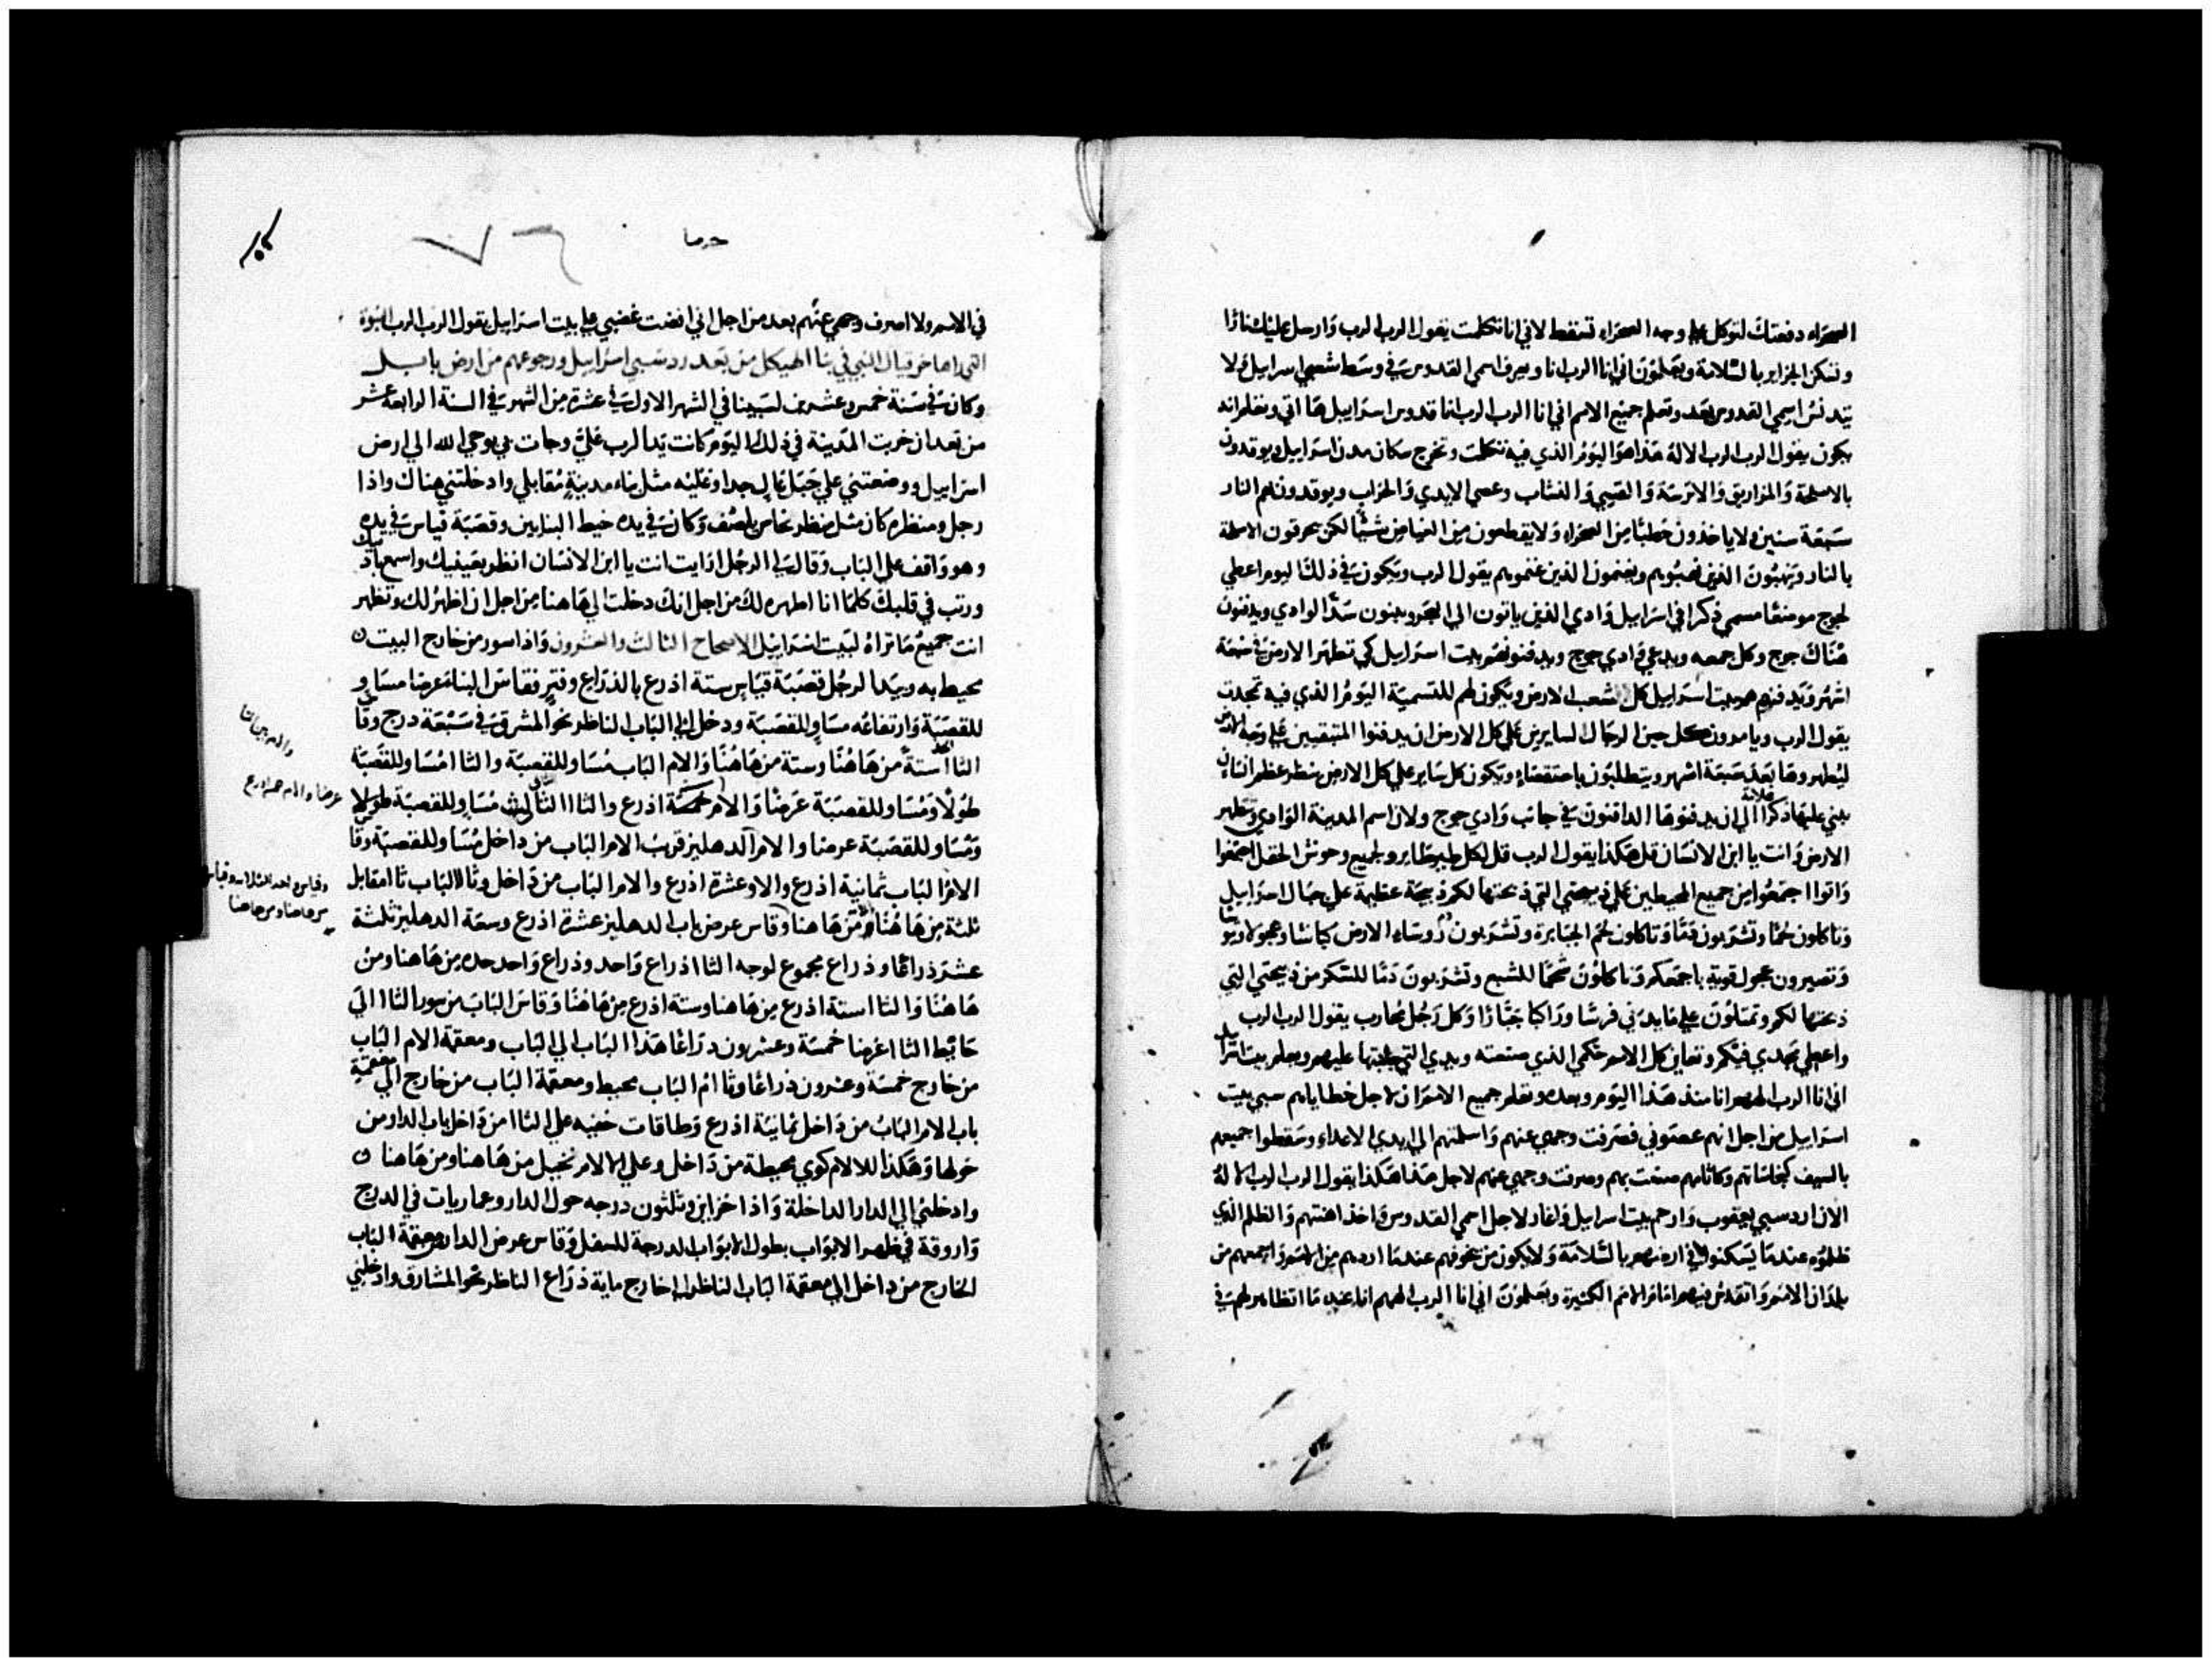 الصحراء دفعتك لتوكل على وجه الصحراء تسقط لاني انا تكلمت يقول الرب الرب وارسل عليك نارا
وتسكن الجزاير بالسلامة ويعلمون اني انا الرب انا ويعرف اسمي القدوس في وسط شعبي اسراييل ولا
يتدنس اسمي القدوس بعد وتعلم جميع الامم اني انا الرب الرب انا قدوس اسراييل ها اتي وتعلم انه
يكون يقول الرب الرب الاله هذا هو اليوم الذي فيه تكلمت وتخرج سكان مدن اسراييل ويوقدون
بالاسلحة والمزاريق والاترسة والقسي والنشاب وعصي الايدي والحراب ويوقدون بهم النار
سبعة سنين ولا ياخذون حطبا من الصحراء ولا يقطعون من الغياض شيا لكن يحرقون الاسلحة
بالنار وينهبون الذين نهبوهم ويغنمون الذين غنموهم يقول الرب ويكون في ذلك اليوم اعطي
لجوج موضعا مسمي ذكرا في اسراييل وادي الذين ياتون الي البحر ويبنون سدا الوادي ويدفنون
هناك جوج وكل جمعه ويدعي وادي جوج ويدفنونهم بيت اسراييل كي تطهر الارض في سبعة
اشهر ويدفنهم بيت اسراييل كل شعب الارض ويكون لهم للتسمية اليوم الذي فيه تمجدت
يقول الرب ويامرون كل حين الرجال السايرين علي كل الارض ان يدفنوا المتبقيين علي وجه الارض
ليطهروها بعد سبعة اشهر ويتطلبون باستقصاء ويكون كل ساير علي كل الارض ينظر عظم انسان
يبني عليها علامة ذكرا الي ان يدفنوها الدافنون في جانب وادي جوج ولان اسم المدينة الوادي وتطهر
الارض وانت يا ابن الانسان قل هكذا يقول الرب قل لكل طير طاير ولجميع وحوش الحقل اجتمعوا
واتوا اجتمعوا من جميع المحيطين علي ذبيحتي التي ذبحتها لكم ذبيحة عظيمة علي جبال اسراييل
وتاكلون لحما وتشربون دما وتاكلون لحم الجبابرة وتشربون دم روساء الارض كباشا وعجولا وتيوسا
وتصيرون عجول قوية باجمعكم وتاكلون شحما للشبع وتشربون دما للسكر من ذبيحتي التي
ذبحتها لكم وتمتلون علي مايدتي فرسا وراكبا جبارا وكل رجل محارب يقول الرب الرب
واعطي مجدي فيكم وتعاين كل الامم حكمي الذي صنعته ويدي التي جلبتها عليهم ويعلم بيت اسراييل
اني انا الرب الههم انا منذ هذا اليوم وبعده وتعلم جميع الامم ان لاجل خطاياهم سبي بيت
اسراييل من اجل انهم عصوني فصرفت وجهي عنهم واسلمتهم الي ايدي الاعداء وسقطوا جميعهم
بالسيف كنجاساتهم وكاثامهم صنعت بهم وصرفت وجهي عنهم لاجل هذا هكذا يقول الرب الرب الاله
الان ارد سبي يعقوب وارحم بيت اسراييل واغار لاجل اسمي القدوس وياخذ اهنتهم والظلم الذي
ظلموه عندما يسكنوا في ارضهم بالسلامة ولا يكون من يخوفهم عندما اردهم من الامم واجمعهم من
بلدان الامم واتقدس فيهم امام الامم الكثيرة ويعلمون اني انا الرب الههم انا عند ما اتظاهر لهم في
في الامم ولا اصرف وجهي عنهم بعد من اجل اني افضت غضبي علي بيت اسراييل يقول الرب الرب النبوة
التي راها حزقيال النبي في بنا الهيكل من بعد رد سبي اسراييل ورجوعهم من ارض بابل
وكان في سنة خمس وعشرين لسبينا في الشهر الاول في عشرة من الشهر في السنة الرابعة عشر
من بعد ان خربت المدينة في ذلك اليوم كانت يد الرب علي وجات بي بوحي الله الي ارض
اسراييل ووضعتني علي جبل عال جدا وعليه مثل بناء مدينة مقابلي وادخلتني هناك واذا
رجل ومنظره كان مثل منظر نحاس يلصف وكان في يده خيط البنايين وقصبة قياس في يده
وهو واقف علي الباب وقال لي الرجل اذا رايت انت يا ابن الانسان انظر بعينيك واسمع باذنيك
ورتب في قلبك كلما انا اظهره لك من اجل انك دخلت الي هاهنا من اجل ان اظهر لك وتظهر
انت جميع ما تراه لبيت اسراييل الاصحاح الثالث والعشرون واذا سور من خارج البيت
محيط به وبيد الرجل قصبة قياس ستة اذرع بالذراع وفتر فقاس البناء عرضا مساو
للقصبة وارتفاعه مساو للقصبة ودخل الي الباب الناظر نحو المشرق في سبعة درج وقاس
الثاا ستة من هاهنا وستة من هاهنا والام الباب مساو للقصبة والثاا مساو للقصبة
طولا ومساو للقصبة عرضا والام خمسة اذرع والثاا الثالث مساو للقصبة طولا
ومساو للقصبة عرضا والام الدهليز قرب الام الباب من داخل مساو للقصبة وقاس
الام الباب ثمانية اذرع والاو عشرة اذرع والام الباب من داخل وثاا الباب ثاا مقابل
ثلثة من هاهنا ومن هاهنا وقاس عرض باب الدهليز عشرة اذرع وسعة الدهليز ثلثة
عشر ذراعا وذراع مجموع لوجه الثاا ذراع واحد وذراع واحد حده من هاهنا ومن
هاهنا والثاا ستة اذرع من هاهنا وستة اذرع من هاهنا وقاس الباب من سور الثاا الي
حايط الثاا عرضا خمسة وعشرون ذراعا هذا الباب الي الباب ومعقمة الام الباب
من خارج خمسة وعشرون ذراعا وثاا ام الباب محيط ومعقمة الباب من خارج الي معقمة
باب الام الباب من داخل ثمانية اذرع وطاقات خفيه علي الثاا من داخل باب الدار من
حولها وهكذا للالام كوي محيطة من داخل وعلي الالام نخيل من هاهنا ومن هاهنا
وادخلني الي الدار الداخلة واذا خزاين وثلثون درجه حول الدار وعماريات في الدرج
واروقة في ظهر الابواب بطول الابواب الدرجة للسفل وقاس عرض الدار من معقمة الباب
الخارج من داخل الي معقمة الباب الناظر الي خارج ماية ذراع الناظر نحو المشارق وادخلني